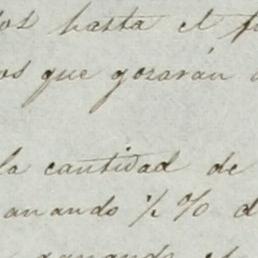 los hasta el
os que gozarán
la cantidad de
anando ½% d
ganando el